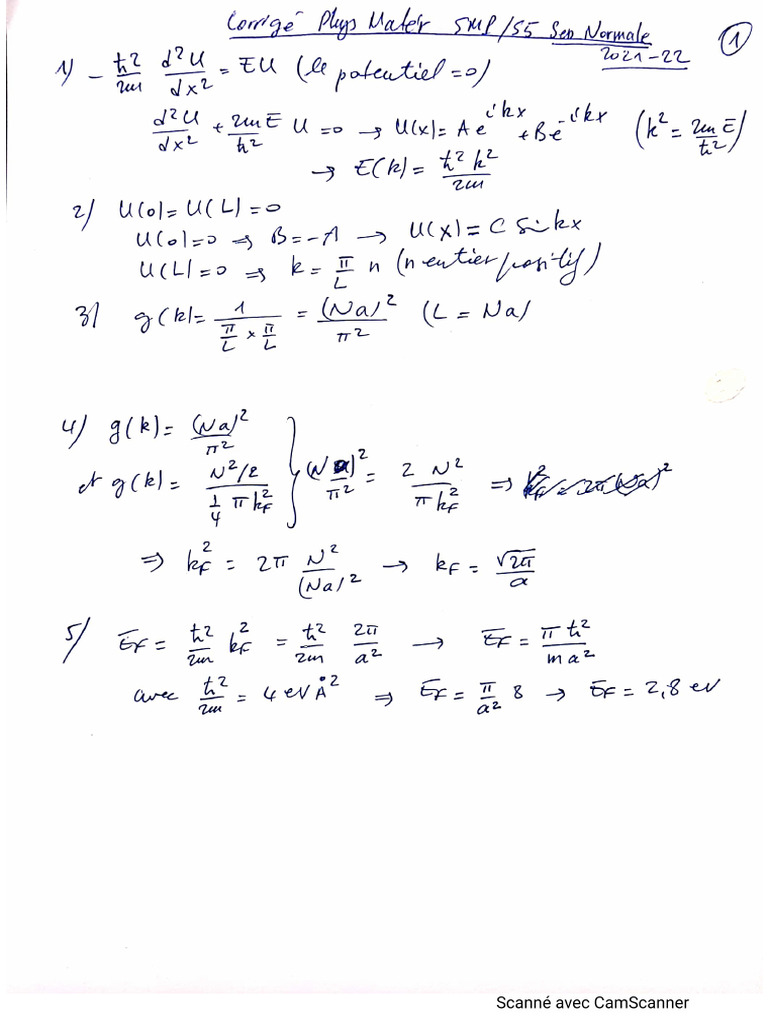 Corrigé Phys Matér SMP/S5 Ses Normale
2021-22
①
1) - ħ²/2m d²U/dx² = EU (le potentiel = 0)
d²U/dx² + 2mE/ħ² U = 0 → U(x) = A e^{ikx} + B e^{-ikx} (k² = 2mE/ħ²)
→ E(k) = ħ²k²/2m
2) U(0) = U(L) = 0
U(0) = 0 ⇒ B = -A → U(x) = C sin kx
U(L) = 0 ⇒ k = π/L n (n entier positif)
3) g(k) = 1/(π/L × π/L) = (Na)²/π² (L = Na)
4) g(k) = (Na)²/π²
et g(k) = (N²/2)/(1/4 π k_F²) } (Na)²/π² = 2 N²/π k_F² ⇒
⇒ k_F² = 2π N²/(Na)² → k_F = √2π/a
5) E_F = ħ²/2m k_F² = ħ²/2m 2π/a² → E_F = π ħ²/m a²
avec ħ²/2m = 4 eV Å² ⇒ E_F = π/a² 8 → E_F = 2,8 eV
Scanné avec CamScanner